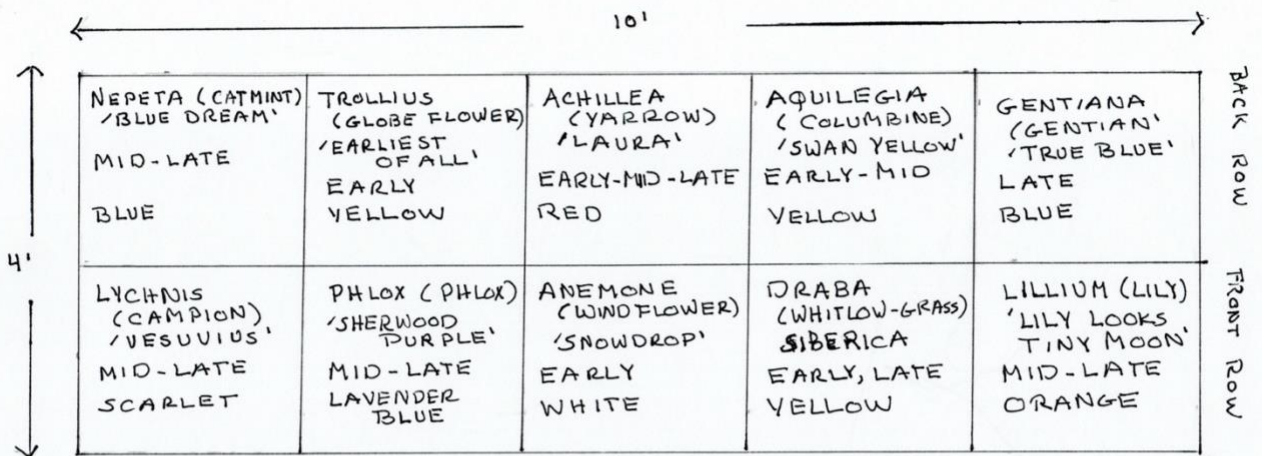 10'
4'
BACK ROW
NEPETA (CATMINT)
'BLUE DREAM'
MID-LATE
BLUE
TROLLIUS
(GLOBE FLOWER)
'EARLIEST
OF ALL'
EARLY
YELLOW
ACHILLEA
(YARROW)
'LAURA'
EARLY-MID-LATE
RED
AQUILEGIA
(COLUMBINE)
'SWAN YELLOW'
EARLY-MID
YELLOW
GENTIANA
(GENTIAN'
'TRUE BLUE'
LATE
BLUE
FRONT ROW
LYCHNIS
(CAMPION)
'VESUVIUS'
MID-LATE
SCARLET
PHLOX (PHLOX)
'SHERWOOD
PURPLE'
MID-LATE
LAVENDER
BLUE
ANEMONE
(WINDFLOWER)
'SNOWDROP'
EARLY
WHITE
DRABA
(WHITLOW-GRASS)
SIBERICA
EARLY, LATE
YELLOW
LILLIUM (LILY)
'LILY LOOKS
TINY MOON'
MID-LATE
ORANGE